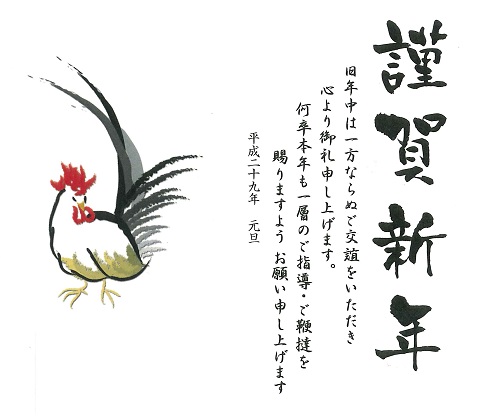 謹賀新年
旧年中は一方ならぬご交誼をいただき
心より御礼申し上げます。
何卒本年も一層のご指導・ご鞭撻を
賜りますよう お願い申し上げます
平成二十九年 元旦